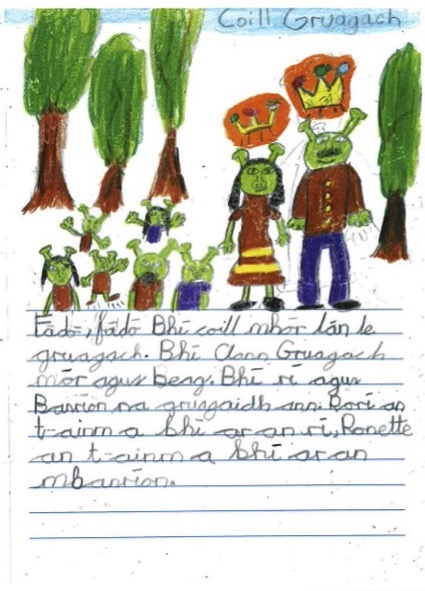 Coill Gruagach
Fadó, fadó Bhí coill mhór lán le
gruagach. Bhí ann Gruagach
mór agus beag. Bhí rí agus
Banríon na gruagaidh ann. Borí an
t-ainm a bhí ar an rí, Ronette
an t-ainm a bhí ar an
mbanríon.